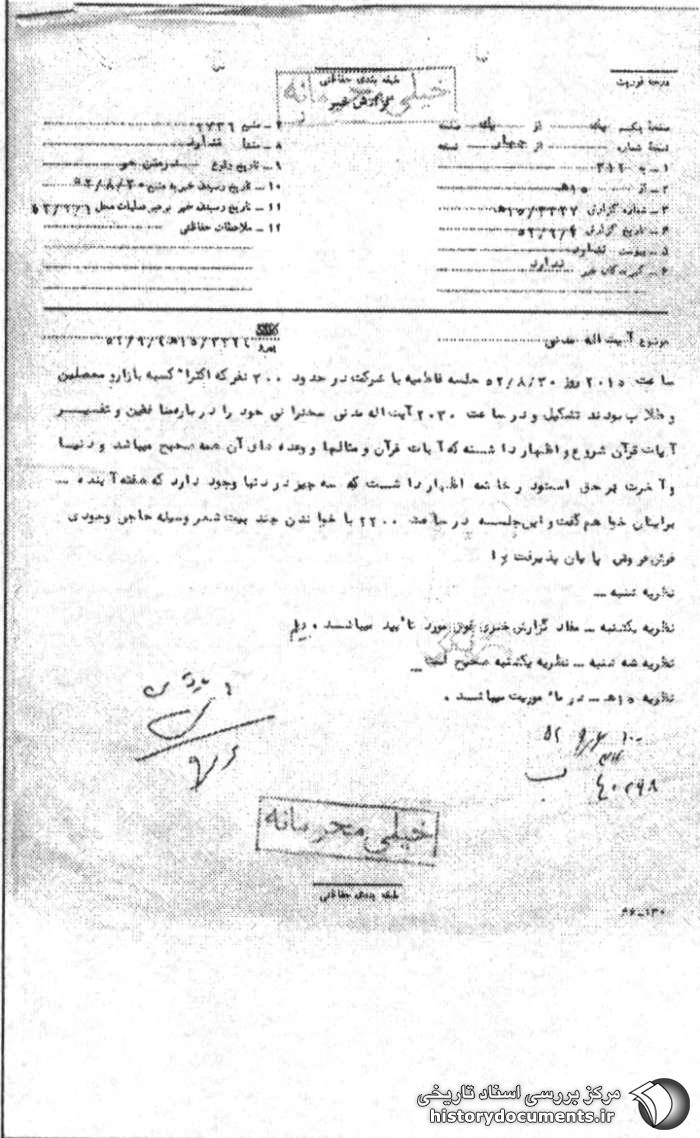 درجه فوریت
طبقه بندی حفاظتی
خیلی محرمانه
گزارش خبر
صفحه یکم از یک صفحه
نسخه شماره از چهار نسخه
۱ ـ به ۳۱۲
۲ ـ از ۱۵ه
۳ ـ شماره گزارش ۱۵/۳۳۲۷ه
۴ ـ تاریخ گزارش
۵ ـ پیوست ندارد
۶ ـ گیرندگان خبر ندارد
۷ ـ منبع ۲۷۳۶
۸ ـ منشأ ندارد
۹ ـ تاریخ وقوع در متن خبر
۱۰ ـ تاریخ رسیدن خبر به منبع ۵۲/۸/۳۰
۱۱ ـ تاریخ رسیدن خبر به رهبر عملیات محل
۱۲ ـ ملاحظات حفاظتی
موضوع آیت اله مدنی
پیرو
ساعت ۲۰۱۵ روز ۵۲/۸/۳۰ جلسه فاطمیه با شرکت در حدود ۳۰۰ نفر که اکثرا" کسبه بازار و محصلین
و طلاب بودند تشکیل و در ساعت ۲۰۳۰ آیت اله مدنی سخنرانی خود را درباره منافقین و تفسیر
آیات قرآنی شروع و اظهار داشته که آیات قرآن و مثالها و وعده های آن همه صحیح میباشد و دنیا
و آخرت برحق است و در خاتمه اظهار داشت که سه چیز در دنیا وجود دارد که هفته آینده ــ
برایتان خواهم گفت و این جلسه در ساعت ۲۲۰۰ با خواندن چند بیت شعر وسیله حاجی وحودی
فرش فروش پایان پذیرفت
نظریه شنبه ــ
نظریه یکشنبه ــ مفاد گزارش خبری فوق مورد تأیید میباشد .
نظریه سه شنبه ــ نظریه یکشنبه صحیح است
نظریه ۱۵ه ــ در مأموریت میباشد .
خیلی محرمانه
طبقه بندی حفاظتی
مرکز بررسی اسناد تاریخی
historydocuments.ir